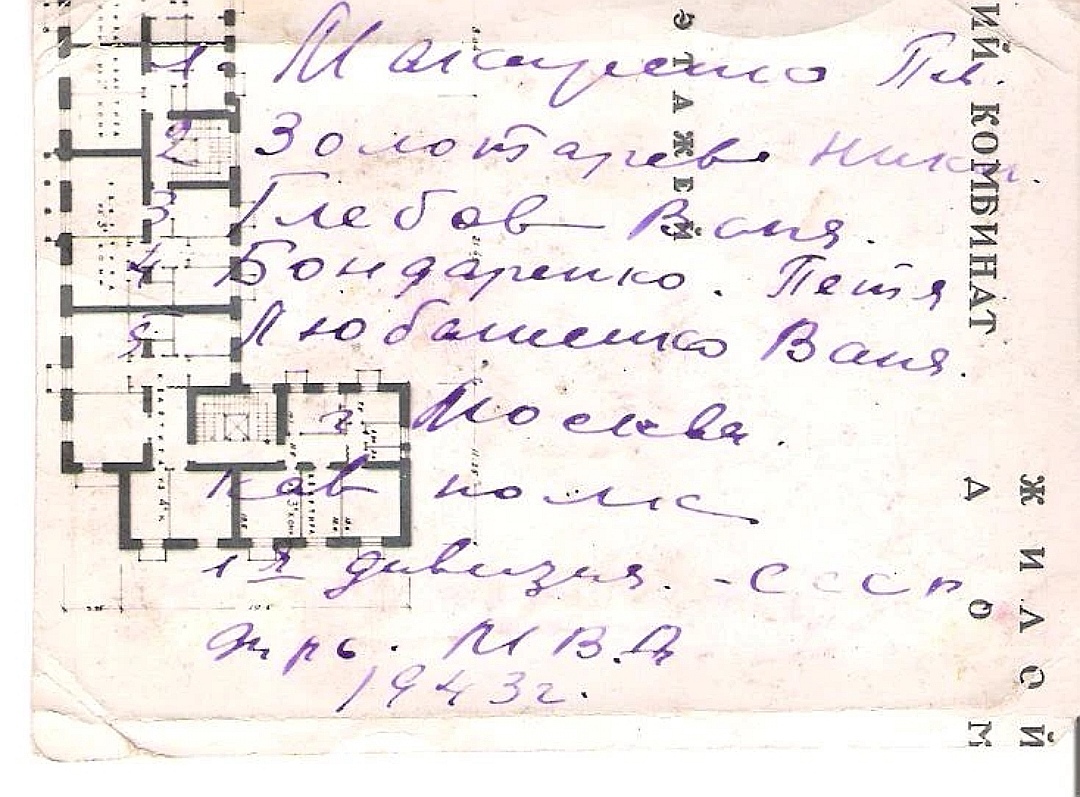 1. Макаренко Пл.
2 Золотарев Ники.
3 Глебов Ваня.
4 Бондаренко. Петя
5 Любашенко Ваня.
г Москва.
кав полк
1я дивизия. - СССР
МВД
1943 г.
ЭТАЖЕЙ
ИЙ КОМБИНАТ
ЖИЛОЙ
ДОМ